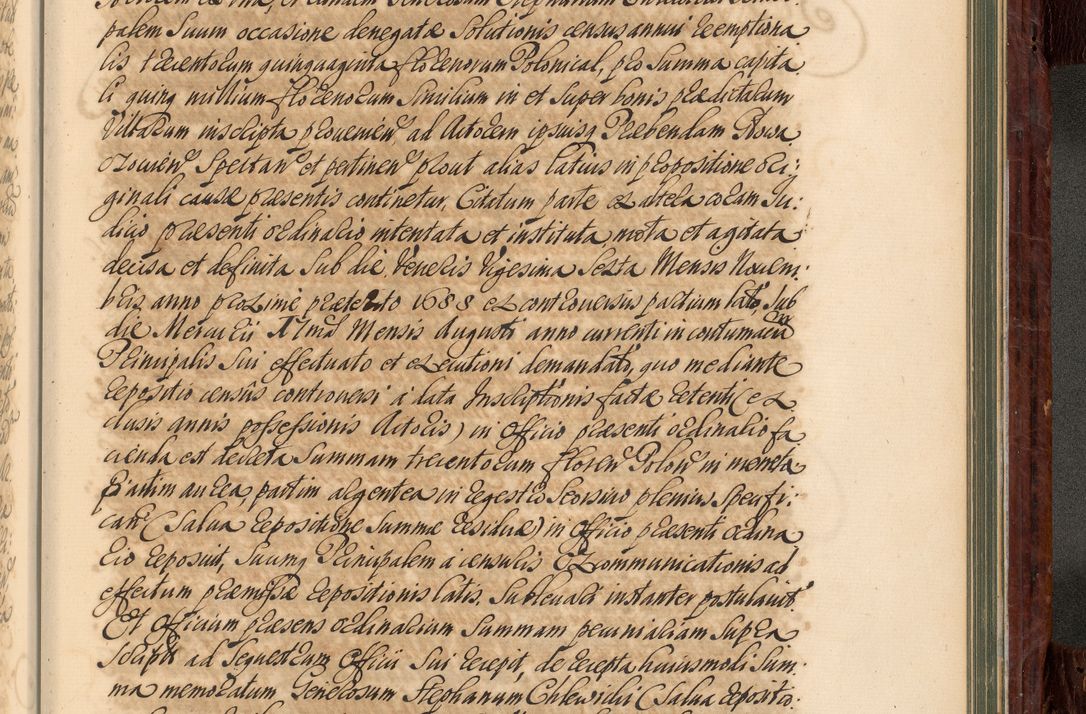 palem Suum occasione denegatæ Solutionis census annui reemptiona
lis trecentorum quinquaginta florenorum Polonical, pro Summa capita
li quinq millium florenorum Similium in et Super bonis prædictarum
Villarum inscripta provenien, ad Actorem ipsiusq Præbendam
Spectan et pertinen prout alias latius in propositione ori:
ginali causæ præsentis continetur, Citatum parte ex altera coram Ju:
dicio præsenti ordinario intentata et instituta, mota et agitata
decisa et definita Sub die Veneris Vigesima Sexta Mensis Novem:
bris anno proxime præterito 1688 ex controversiis partium lato, Sub
die Mercurii Mensis Augusti anno currenti in contumaciam
Principalis Sui effectuato et executioni demandato, quo mediante
repositio censûs controversi à data Inscriptionis factæ retenti (ex
clusis annis possessionis Actoris) in Officio præsenti ordinario fa
cienda est decreta Summam trecentorum floren Polon in moneta
partim aurea partim argentea in regestro Seorsivo plenius Specifi:
can (Salva repositione Summæ residuæ) in Officio præsenti ordina
rio reposuit, Suumq Principalem à censuris Excommunicationis ad
effectum præmissæ repositionis latis, Sublevari instanter postulavit
Et Officium præsens ordinarium Summam pecuniariam Supra
Scriptam ad Sequestrum Officii Sui recepit, de recepta huiusmodi Sum:
ma memoratum Generosum Stephanum Chlewicki (Salva repositio: